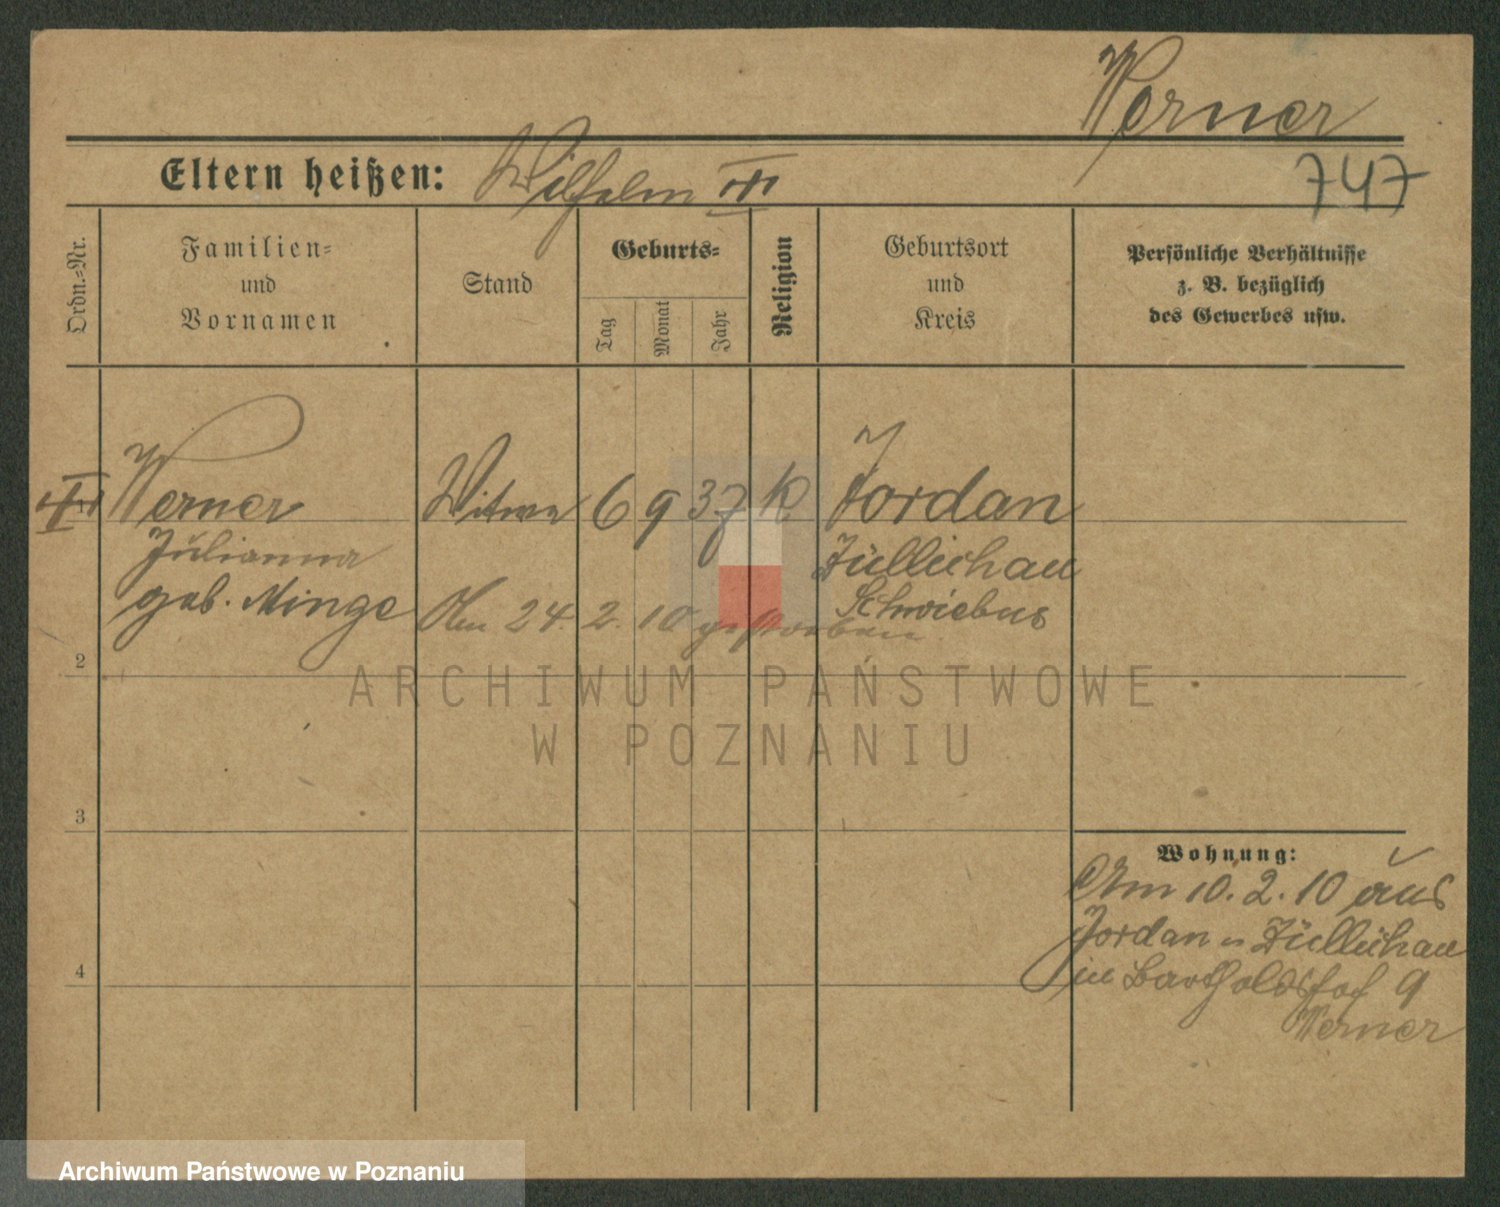 Werner
Eltern heißen: Wilhelm III
747
Ordn.-Nr.
Familien-
und
Vornamen
Stand
Geburts-
Tag
Monat
Jahr
Religion
Geburtsort
und
Kreis
Persönliche Verhältnisse
z. B. bezüglich
des Gewerbes usw.
Werner Witwe 6 9 37 K Jordan
Julianna
Züllichau
geb. Minge
Schwiebus
Am 24. 2. 10 gestorben.
2
3
4
Wohnung:
Am 10. 2. 10 aus
Jordan Züllichau
in Bartholdshof 9
Werner
ARCHIWUM PAŃSTWOWE
W POZNANIU
Archiwum Państwowe w Poznaniu